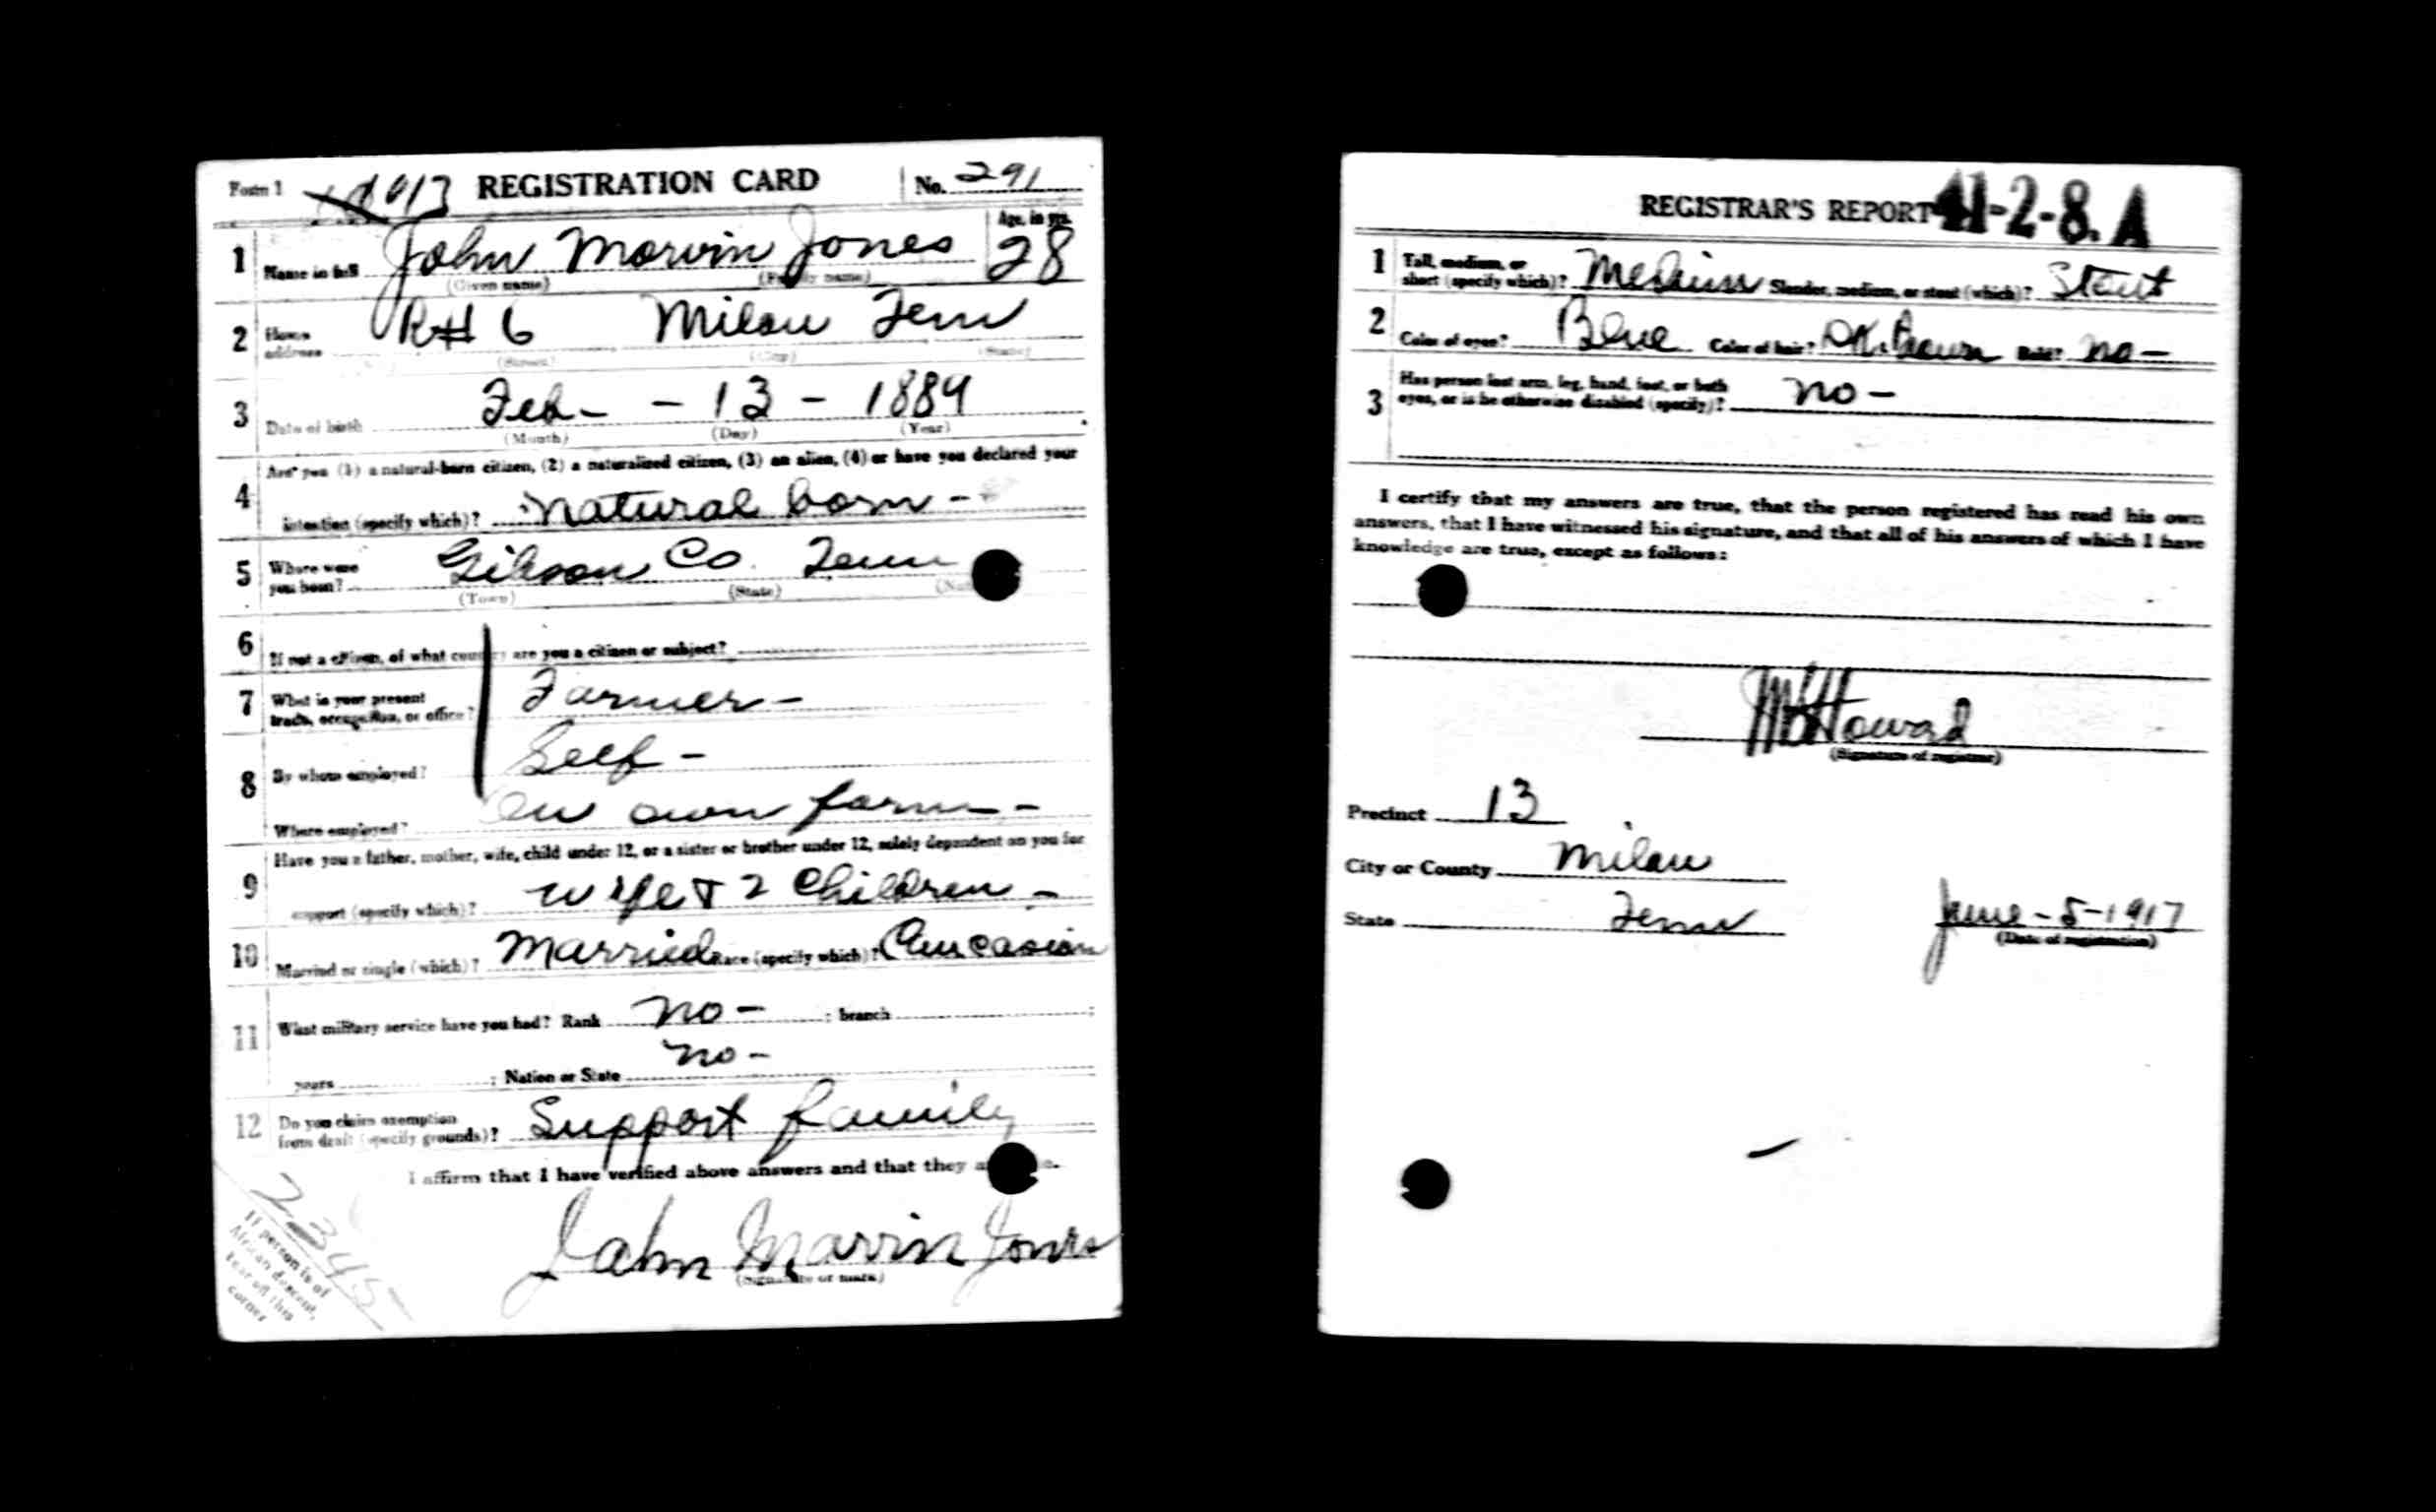 Form 1 REGISTRATION CARD No. 291
1 Name in full John Marvin Jones Age, in yrs. 28
(Given name) (Family name)
2 Home address R#6 Milan Tenn
(Street) (City) (State)
3 Date of birth Feb - - 13 - 1889
(Month) (Day) (Year)
4 Are you (1) a natural-born citizen, (2) a naturalized citizen, (3) an alien, (4) or have you declared your
intention (specify which)? natural born -
5 Where were you born? Gibson Co. Tenn
(Town) (State)
6 If not a citizen, of what country are you a citizen or subject?
7 What is your present trade, occupation, or office? Farmer -
8 By whom employed? Self -
Where employed? On own farm -
9 Have you a father, mother, wife, child under 12, or a sister or brother under 12, solely dependent on you for
support (specify which)? Wife & 2 Children -
10 Married or single (which)? Married Race (specify which)? Caucasian
11 What military service have you had? Rank no - ; branch ;
years ; Nation or State no -
12 Do you claim exemption from draft (specify grounds)? Support family
I affirm that I have verified above answers and that they
John Marvin Jones
(Signature or mark)
2345
If person is of
African descent,
tear off this
corner
REGISTRAR'S REPORT 41-2-8. A
1 Tall, medium, or short (specify which)? Medium Slender, medium, or stout (which)? Stout
2 Color of eyes? Blue Color of hair? Dk. Brown Bald? no -
3 Has person lost arm, leg, hand, foot, or both
eyes, or is he otherwise disabled (specify)? no -
I certify that my answers are true, that the person registered has read his own
answers, that I have witnessed his signature, and that all of his answers of which I have
knowledge are true, except as follows:
Howard
(Signature of registrar)
Precinct 13
City or County Milan
State Tenn June - 5 - 1917
(Date of registration)